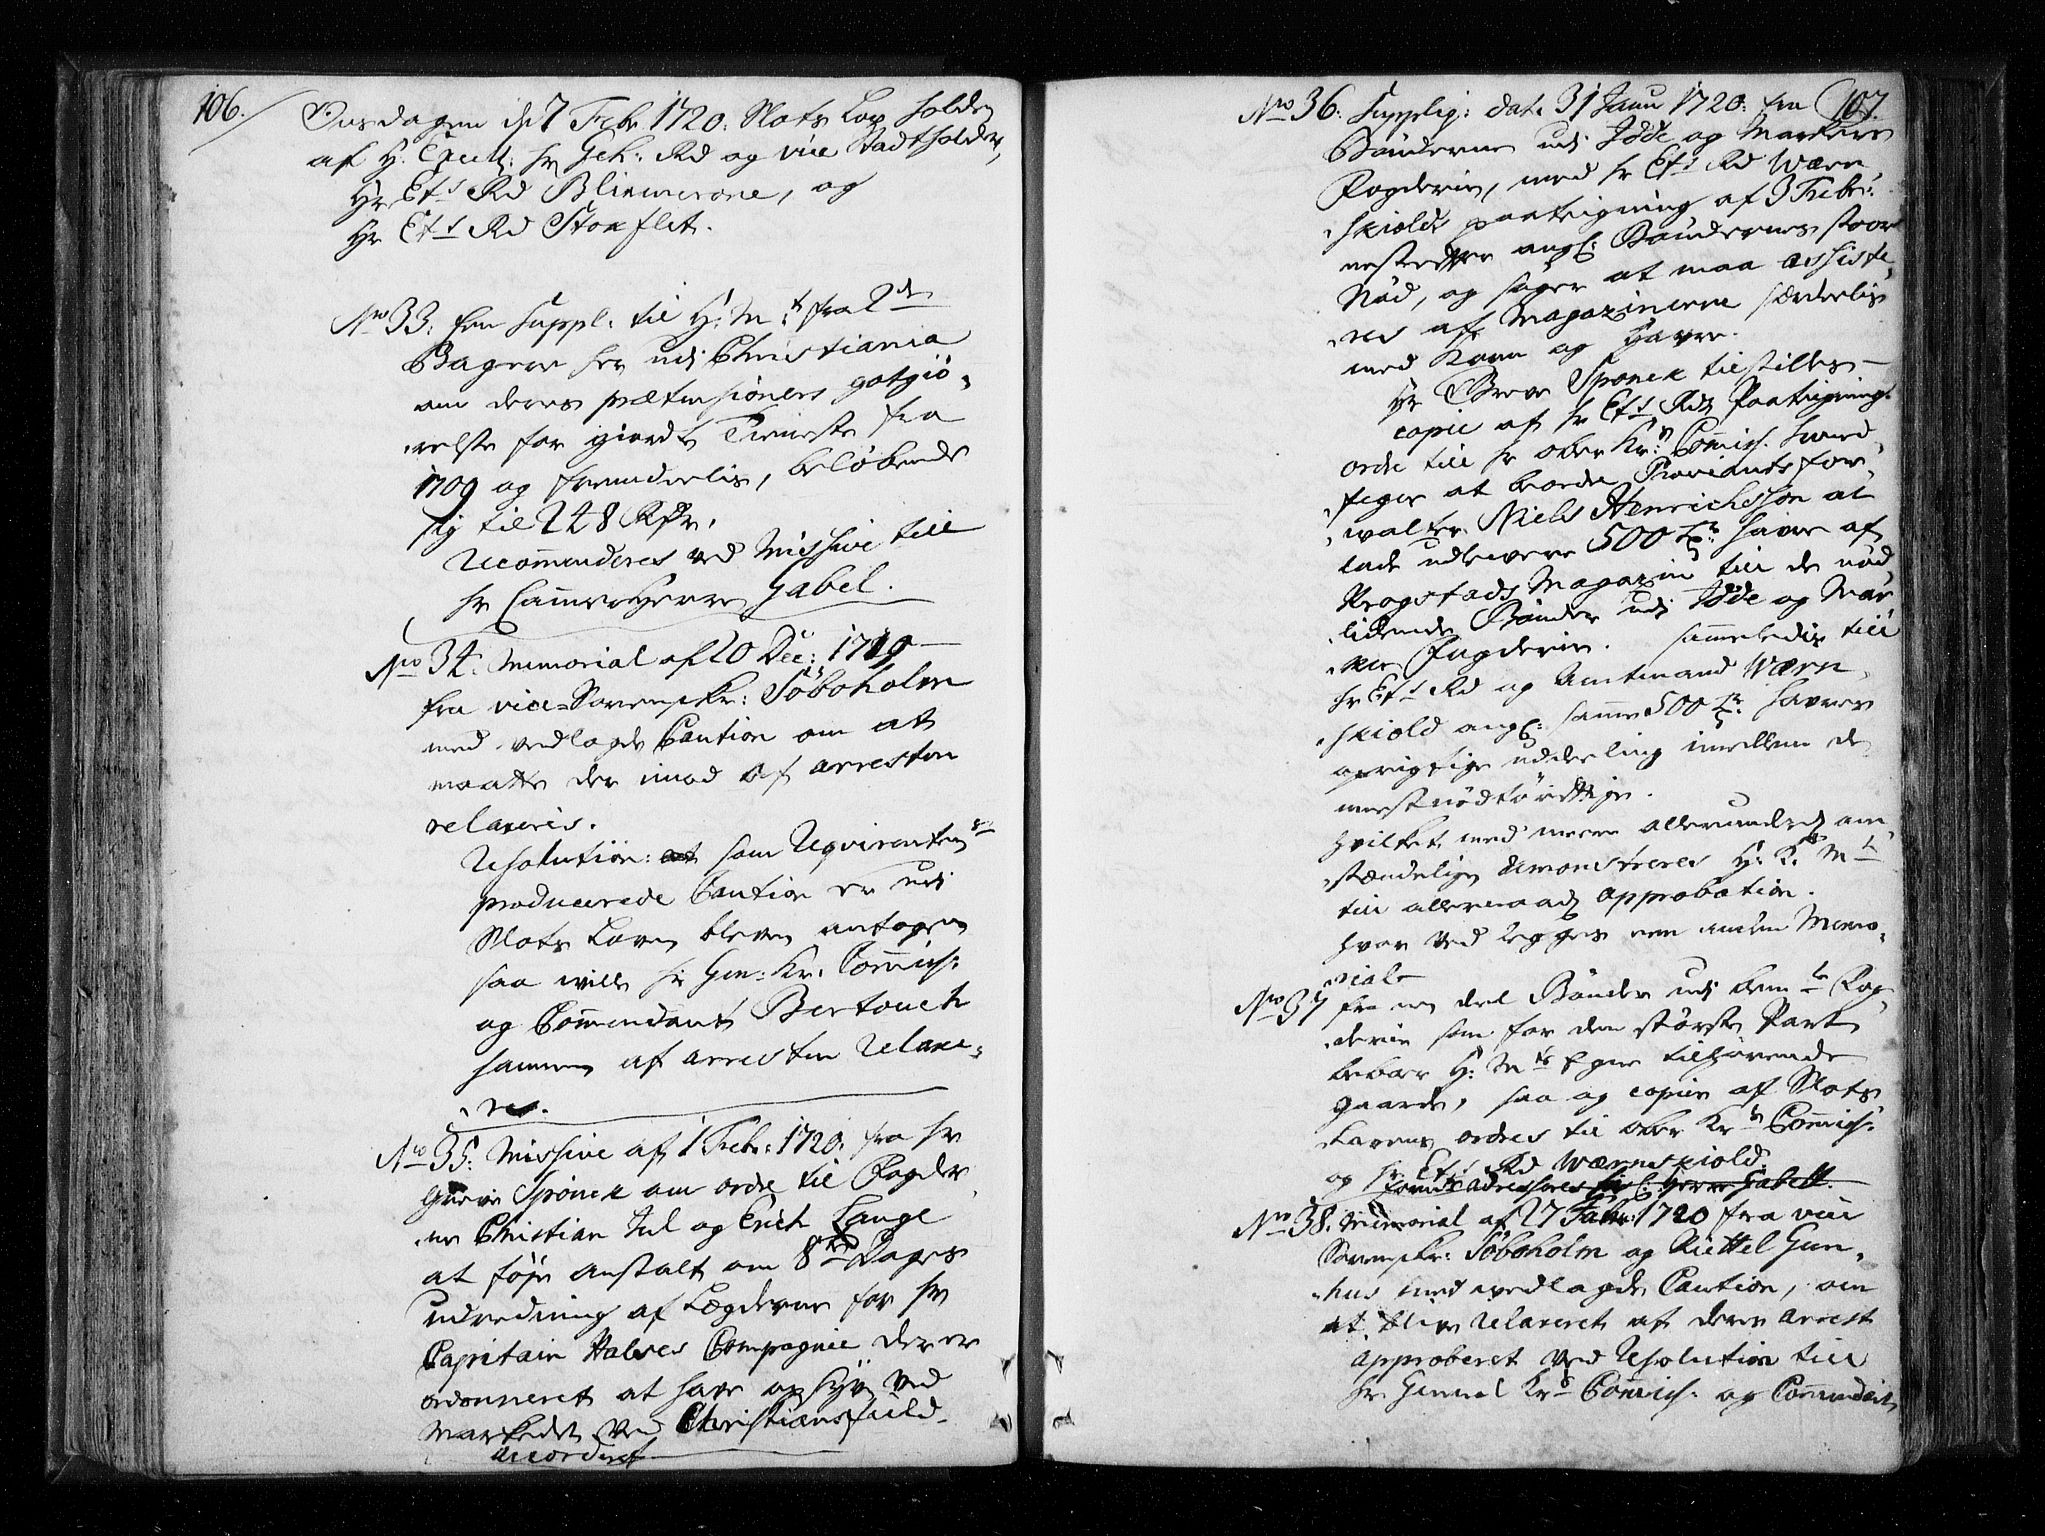 106.
Onsdagen d. 7 Febr. 1720. Slots Lov holden
af H. Excell: hr Geh: Rd og vice Stadtholder,
Hr Ets Rd Blixencrone, og
Hr Ets Rd Stoxflet.
No 33. En Suppl: til H: M:t fra 2de
Bagere her udi Christiania
om deres prætensioners gotgiö-
relse for giorde Tieneste fra
1709 og fremdeelis, belöbende
sig til 248 Rdr.
Recommenderes ved Missive till
hr CammerHerre Gabel.
No 34. Memorial af 20 Dec: 1719
fra vice-Sorenskr: Söboholm
med vedlagde Caution om at
maatte der imod af arresten
relaxeris.
Resolution: som Reqvirentens
producerede Caution er udi
Slots Loven bleven antagen
saa wille hr Gen: Kr: Commiss:
og Commendant Bertouch
hannem af arresten Relaxe-
res.
No 35. Missive af 1 Febr: 1720. fra hr
Greve Sponek om ordre til Fogder
ne Christian Jul og Erich Lange
at föje anstalt om 8te Dages
Udredning af Lægderne for hr
Capitain Halses Compagnie der er
ordonneret at have og hyv ved
Markedet ved Christiansfield.
accorderet
107.
No 36. Suppliq: dat. 31 Janu 1720. fra
Bönderne udi Idde og Markers
Fogderie, med hr Ets Rd Wærn-
skiolds paategning af 3 Febr:
nestefter angl: Böndernes stoor
Nöd, og söger at maa assiste-
res af Magazinerne særdeelis
med Korn og Havre.
Hr Greve Sponek tilstilles
copie af hr Ets Rds Paategning
ordre till hr ober Kr: Commiss: Swend
feger at beordre Proviantsfor-
walter Niels Henrichsson at
lade udlevere 500 Tr: havre af
Krogstads Magazin till de nöd-
lidende Bönder udi Idde og Mar-
ker Fogderie. Sammeledis till
hr Ets Rd og Amtmand Wærn-
skiold angl: samme 500 Tr: havres
oprigtige uddeeling imellem de
meest nödtörfftige.
hvilket med meere allerunderd: om-
stændelig demonstreres H: K: Mt
till allernaad: approbation.
hvor ved legges een anden Memo-
rial
No 37 fra en deel Bönder udi bemte Fog-
derie som for den störste Part
beboer H: Mts Egne tilhörende
Gaarde, saa og copier af Slots
Lovens ordres til ober Krs Commiss:
og hr Ets Rd Wærnskiold.
No 38. Memorial af 27 Janu: 1720 fra vice
Sorenskr: Söboholm og Kiettel Gun-
hus med vedlagde Caution, om
at blive Relaxeret af deres Arrest
approberet ved Resolution till
hr General Krs Commiss: og Commendant